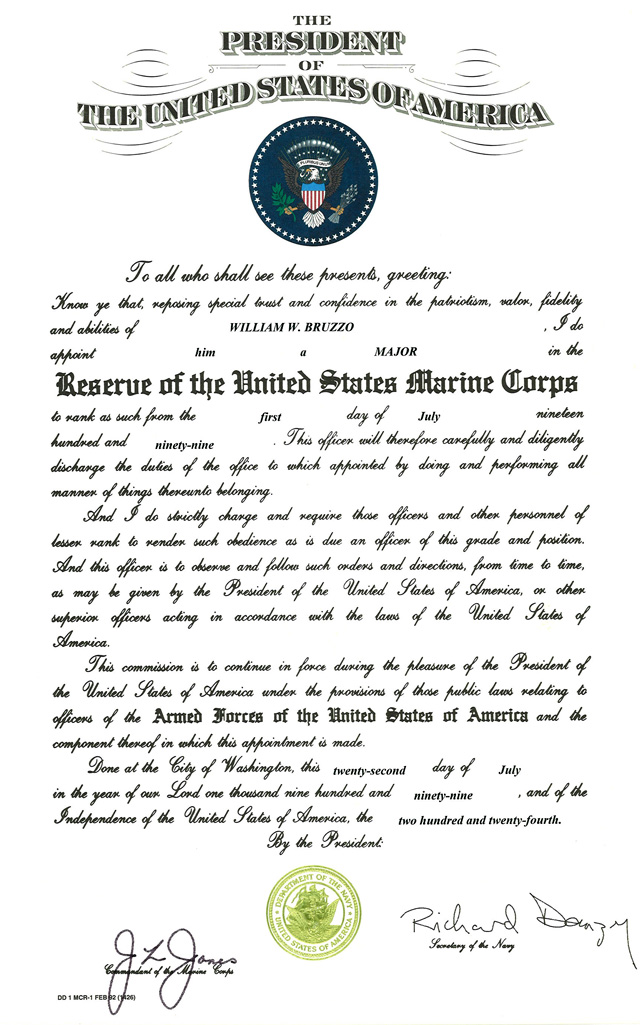 THE
PRESIDENT
OF
THE UNITED STATES OF AMERICA
To all who shall see these presents, greeting:
Know ye that, reposing special trust and confidence in the patriotism, valor, fidelity
and abilities of WILLIAM W. BRUZZO , I do
appoint him a MAJOR in the
Reserve of the United States Marine Corps
to rank as such from the first day of July nineteen
hundred and ninety-nine . This officer will therefore carefully and diligently
discharge the duties of the office to which appointed by doing and performing all
manner of things thereunto belonging.
And I do strictly charge and require those officers and other personnel of
lesser rank to render such obedience as is due an officer of this grade and position.
And this officer is to observe and follow such orders and directions, from time to time,
as may be given by the President of the United States of America, or other
superior officers acting in accordance with the laws of the United States of
America.
This commission is to continue in force during the pleasure of the President of
the United States of America under the provisions of those public laws relating to
officers of the Armed Forces of the United States of America and the
component thereof in which this appointment is made.
Done at the City of Washington, this twenty-second day of July
in the year of our Lord one thousand nine hundred and ninety-nine , and of the
Independence of the United States of America, the two hundred and twenty-fourth.
By the President:
DEPARTMENT OF THE NAVY
UNITED STATES OF AMERICA
Richard Danzig
Secretary of the Navy
J L Jones
Commandant of the Marine Corps
DD 1 MCR-1 FEB 92 (1426)